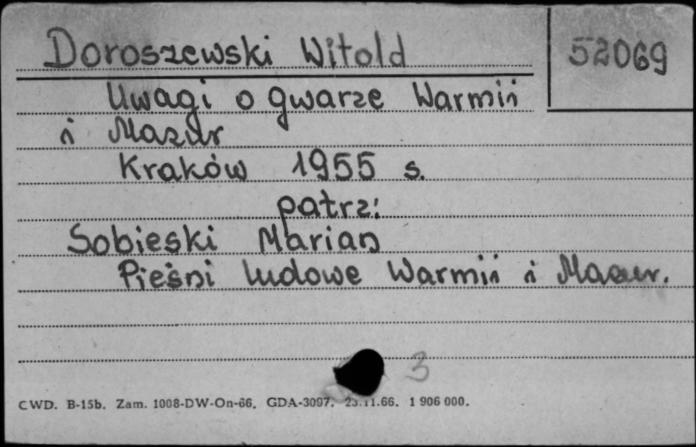 Doroszewski Witold
52069
Uwagi o gwarze Warmii
i Mazur
Kraków 1955 s.
patrz:
Sobieski Marian
Pieśni ludowe Warmii i Mazur.
3
CWD. B-15b. Zam. 1008-DW-On-66. GDA-3097. 23.11.66. 1 906 000.